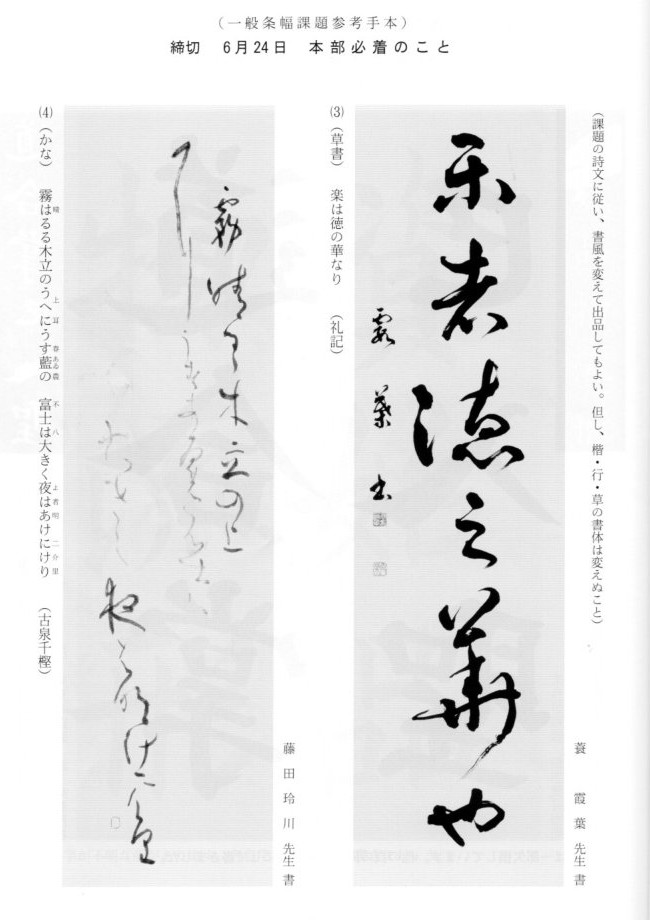 （一般条幅課題参考手本）
締切　6月24日　本部必着のこと
（課題の詩文に従い、書風を変えて出品してもよい。但し、楷・行・草の書体は変えぬこと）
蓑　霞葉先生書
楽者徳之華也
霞葉書
(3)（草書）　楽は徳の華なり　（礼記）
藤田玲川先生書
(4)（かな）　霧はるる木立のうへにうす藍の　富士は大きく夜はあけにけり　（古泉千樫）